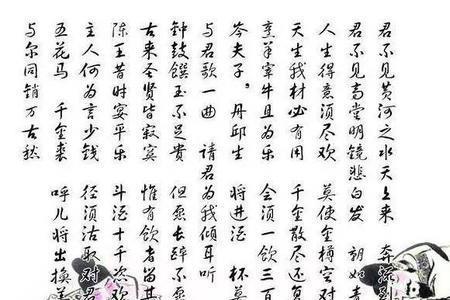 君不见黄河之水天上来 奔流到
君不见高堂明镜悲白发 朝如青
人生得意须尽欢 莫使金樽空对
天生我材必有用 千金散尽还复
烹羊宰牛且为乐 会须一饮三百
岑夫子,丹邱生 将进酒 杯莫
与君歌一曲 请君为我倾耳听
钟鼓馔玉不足贵 但愿长醉不愿
古来圣贤皆寂寞 惟有饮者留其
陈王昔时宴平乐 斗酒十千恣欢
主人何为言少钱 径须沽取对君
五花马 千金裘 呼儿将出换美
与尔同销万古愁